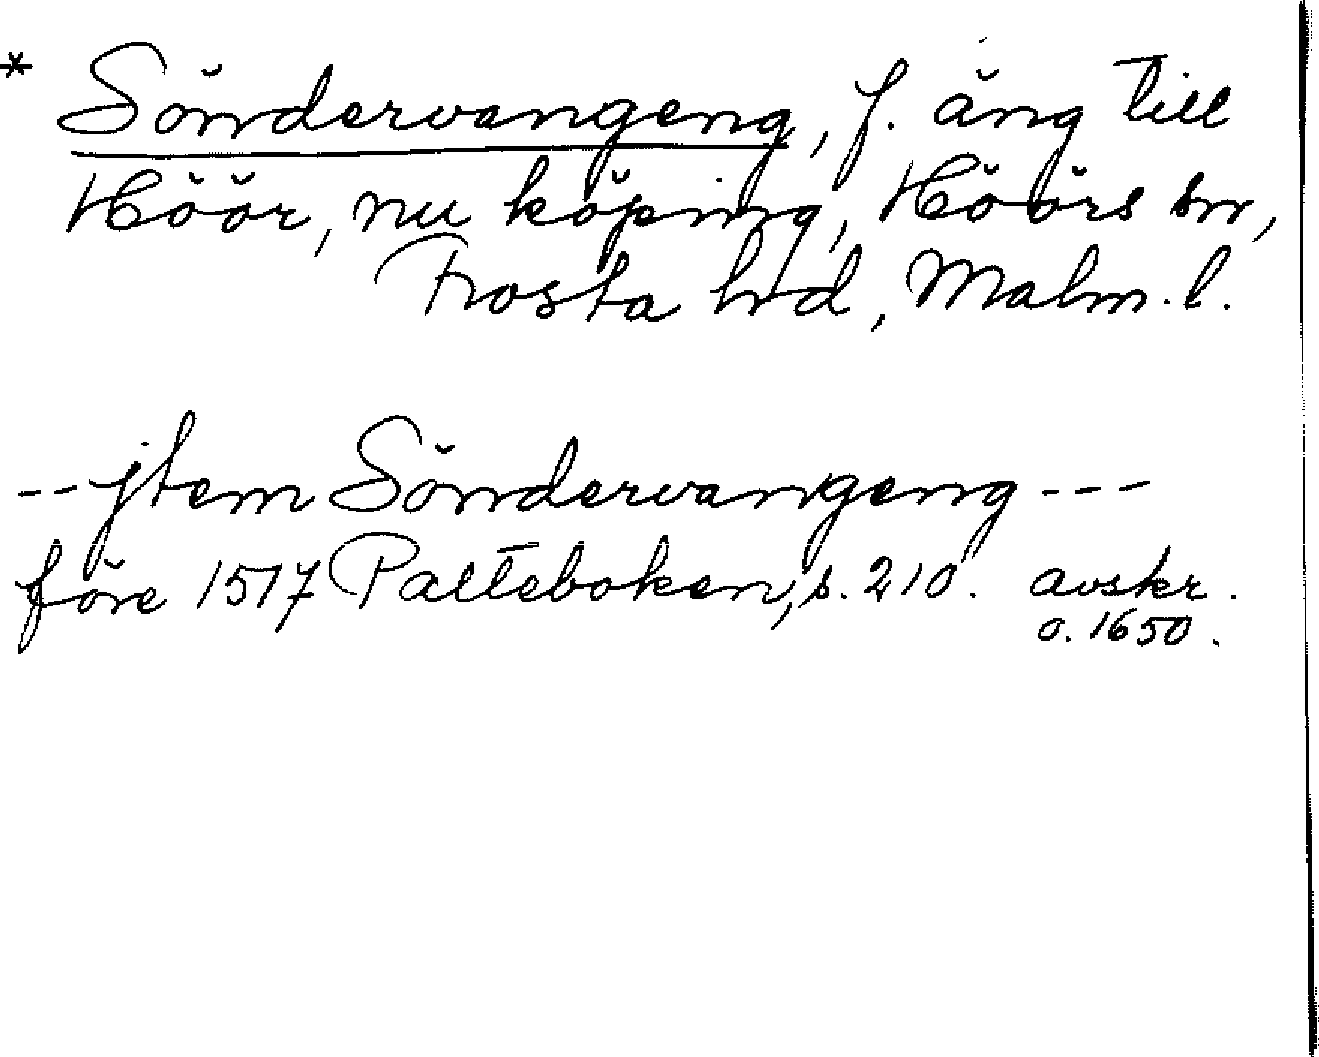 * Söndervangeng, f. äng till
Höör, nu köping, Höörs sn,
Frosta hrd, Malm. l.
-- jtem Söndervangeng ---
före 1517 Palteboken, s. 210. avskr.
o. 1650.